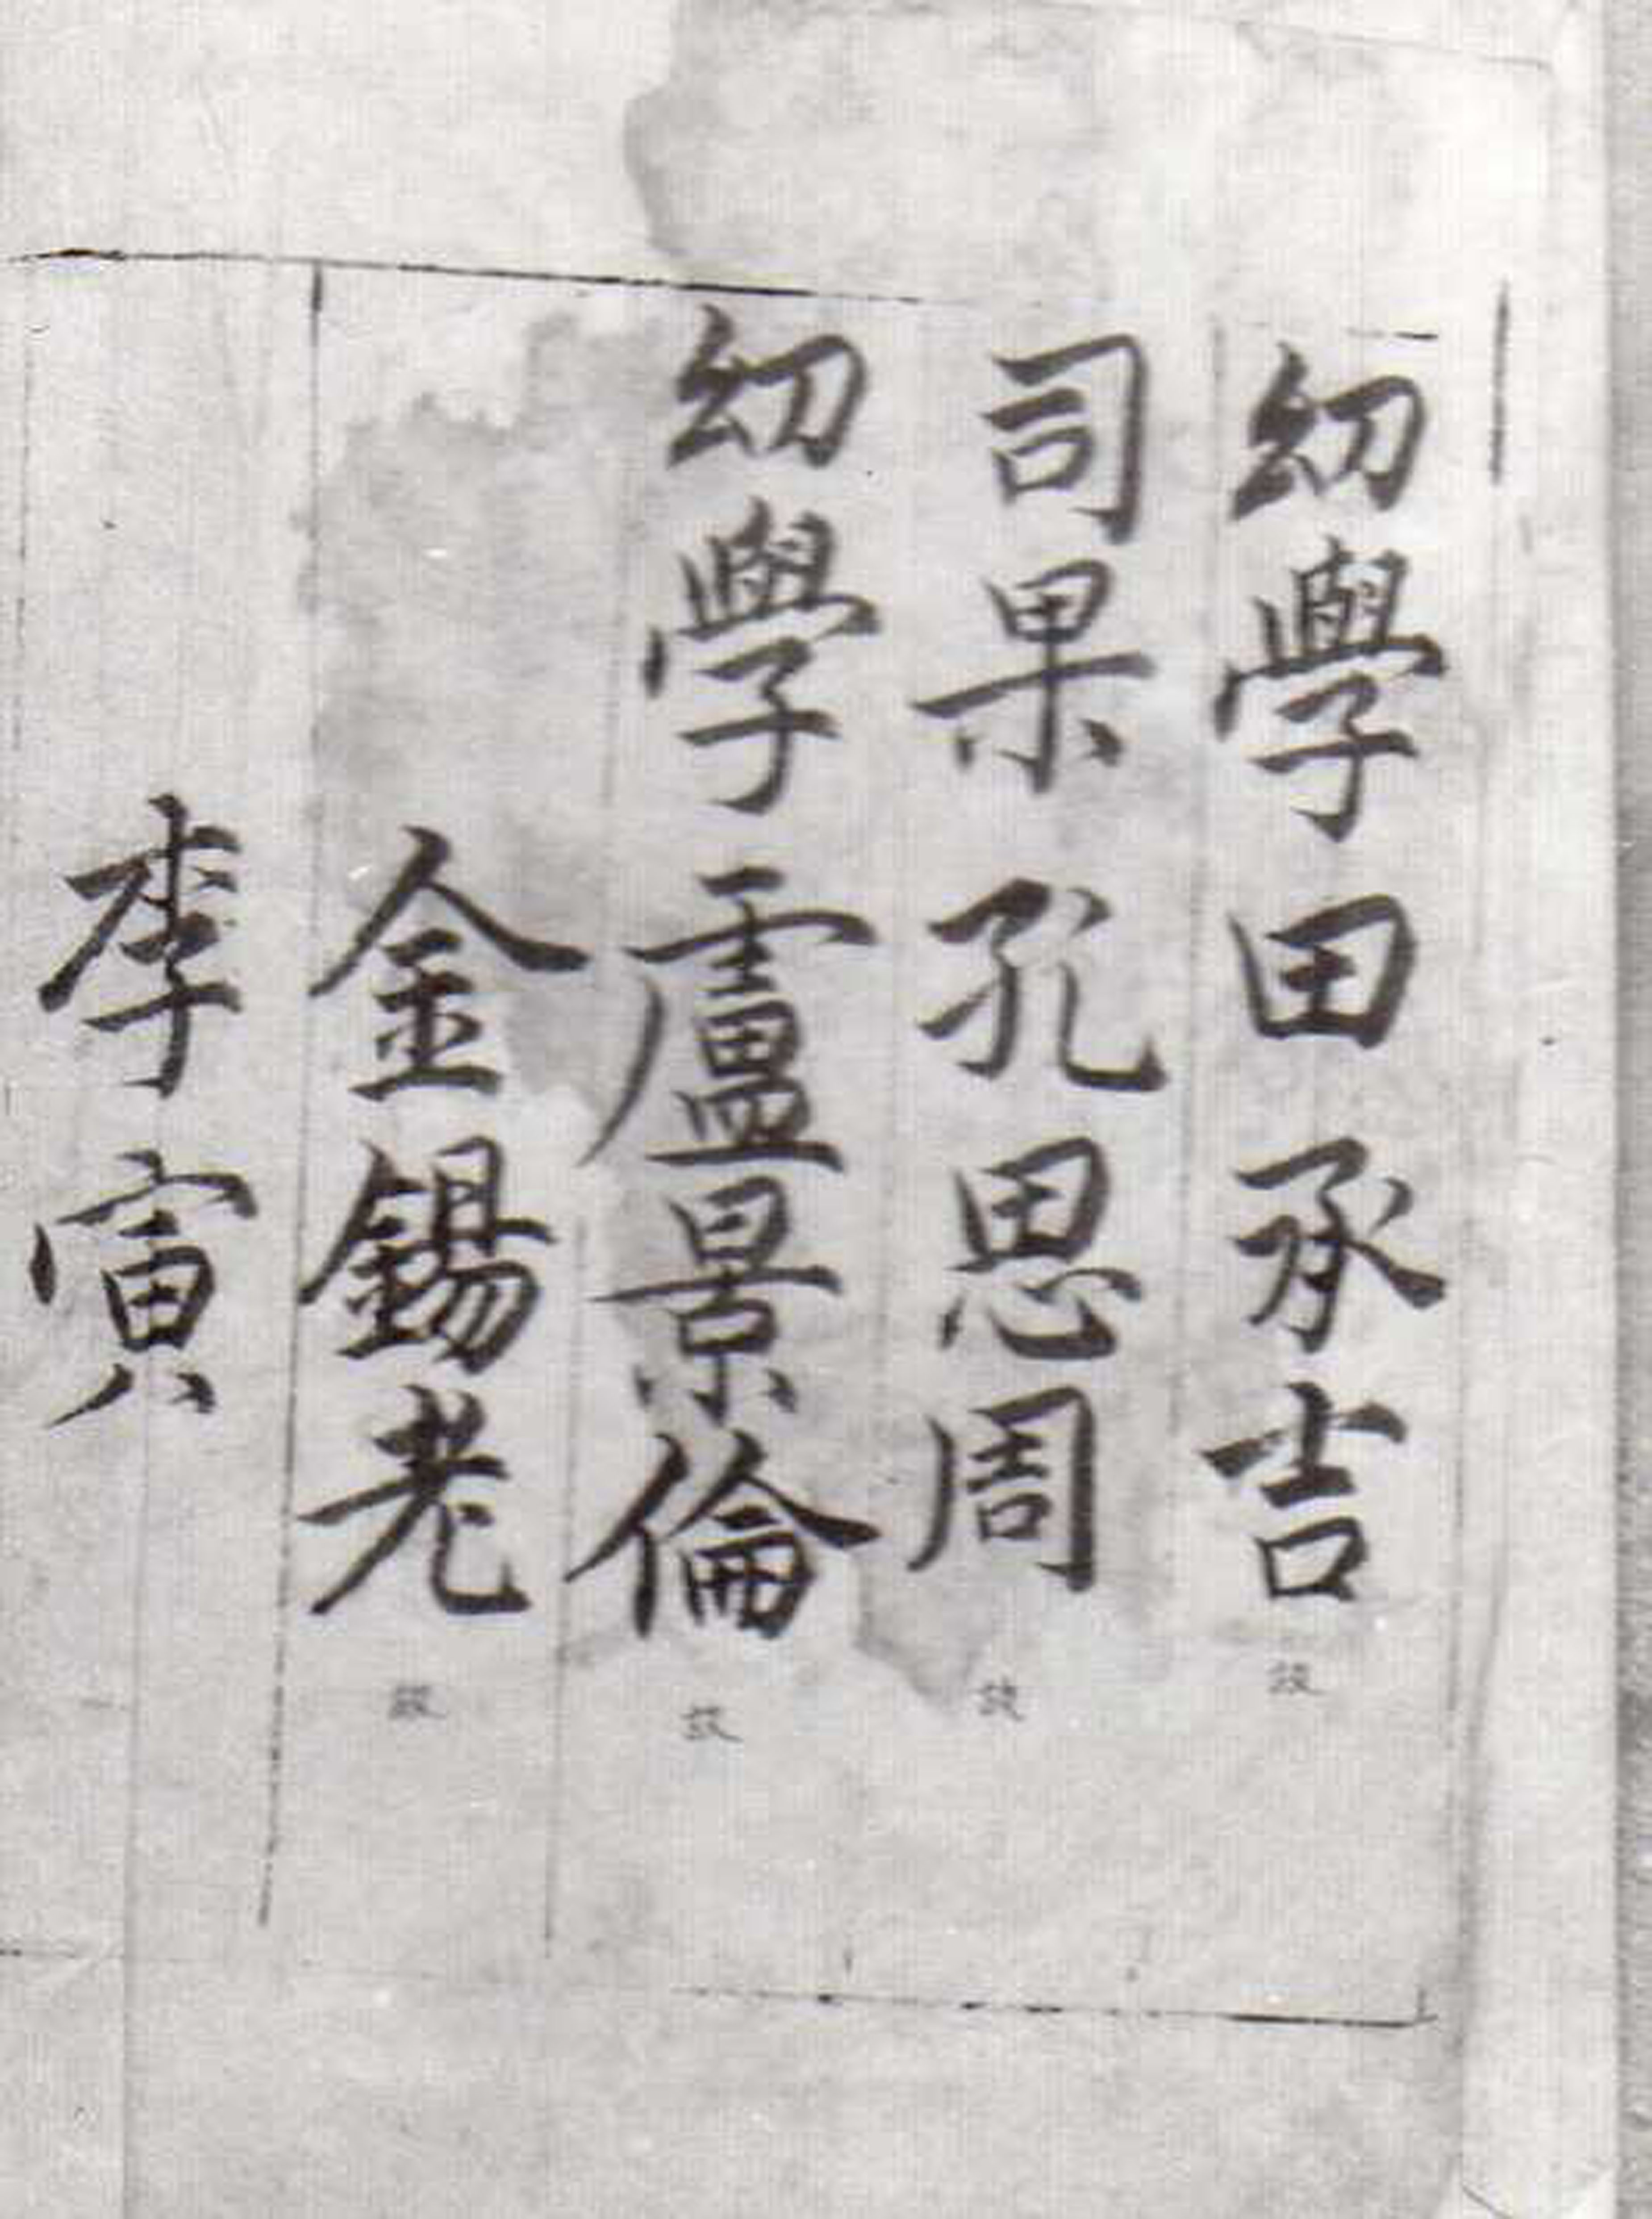 幼學田承吉
司果孔思周
幼學盧景倫
金錫老
李寅